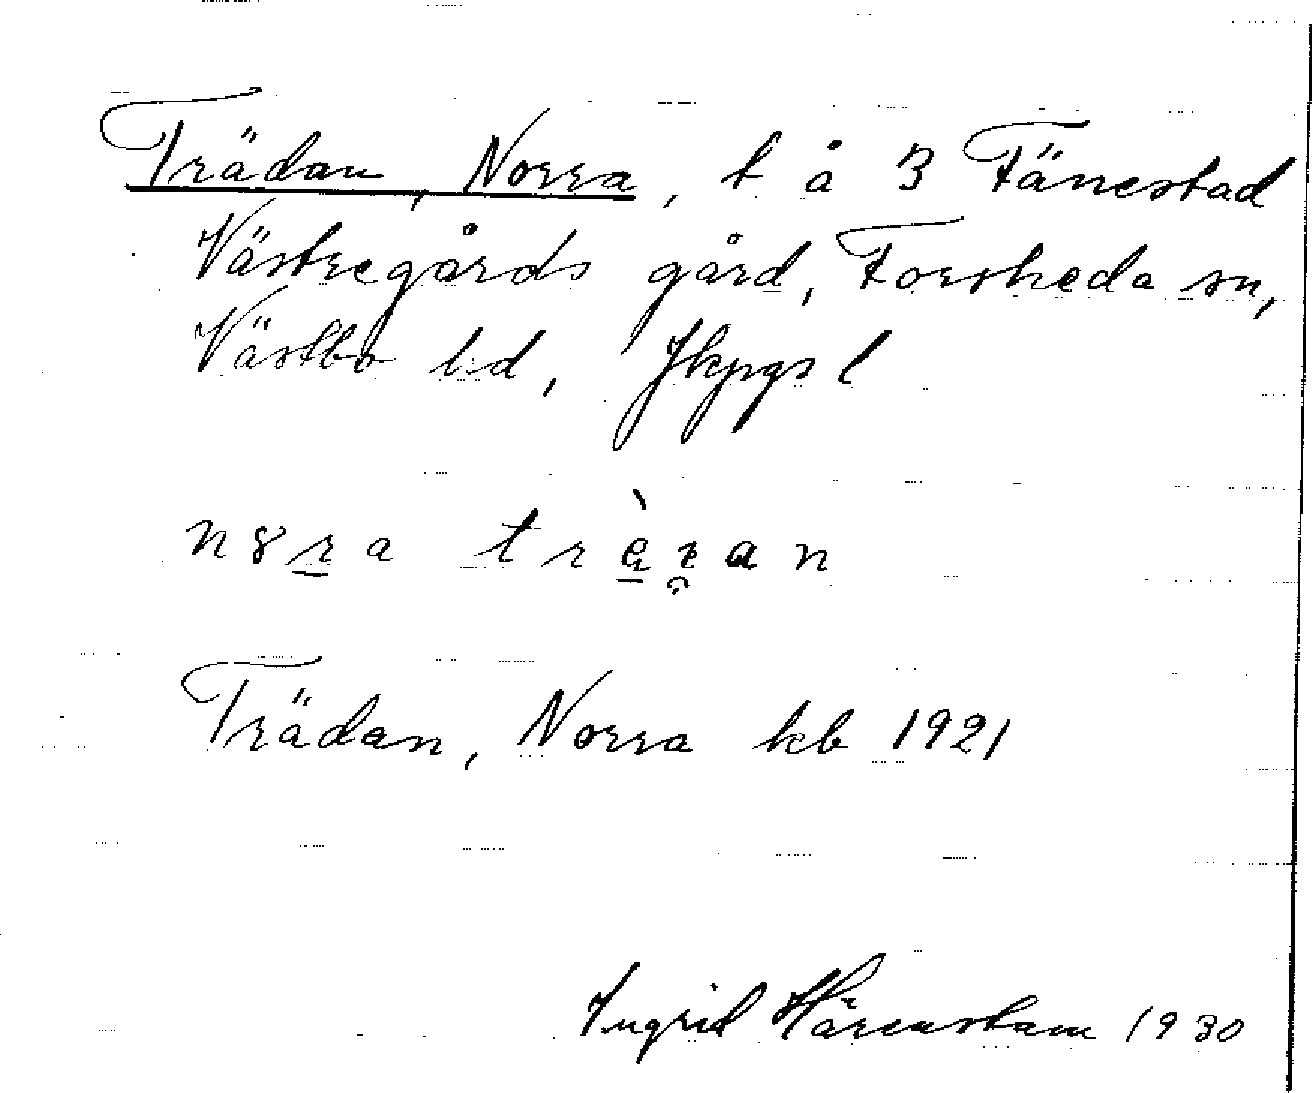 Trädan, Norra, t å 3 Fänestad
Västregårds gård, Forsheda sn,
Västbo hd, Jkpgs l
Trädan, Norra kb 1921
Ingrid Härenstam 1930